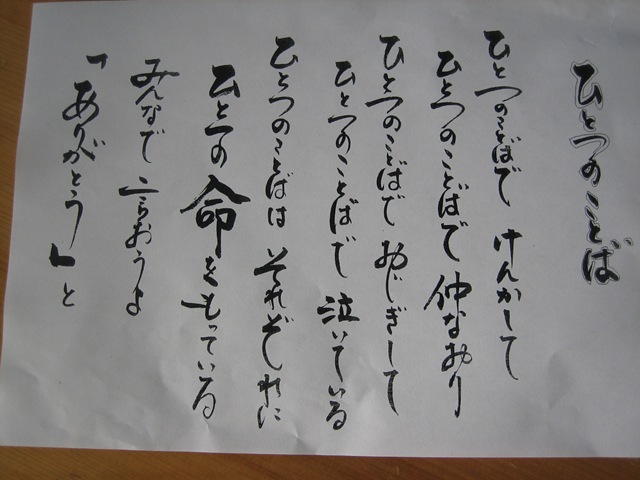 ひとつのことば
ひとつのことばで けんかして
ひとつのことばで 仲なおり
ひとつのことばで おじぎして
ひとつのことばで 泣いている
ひとつのことばは それぞれに
ひとつの命をもっている
みんなで 言おうよ
「ありがとう」と